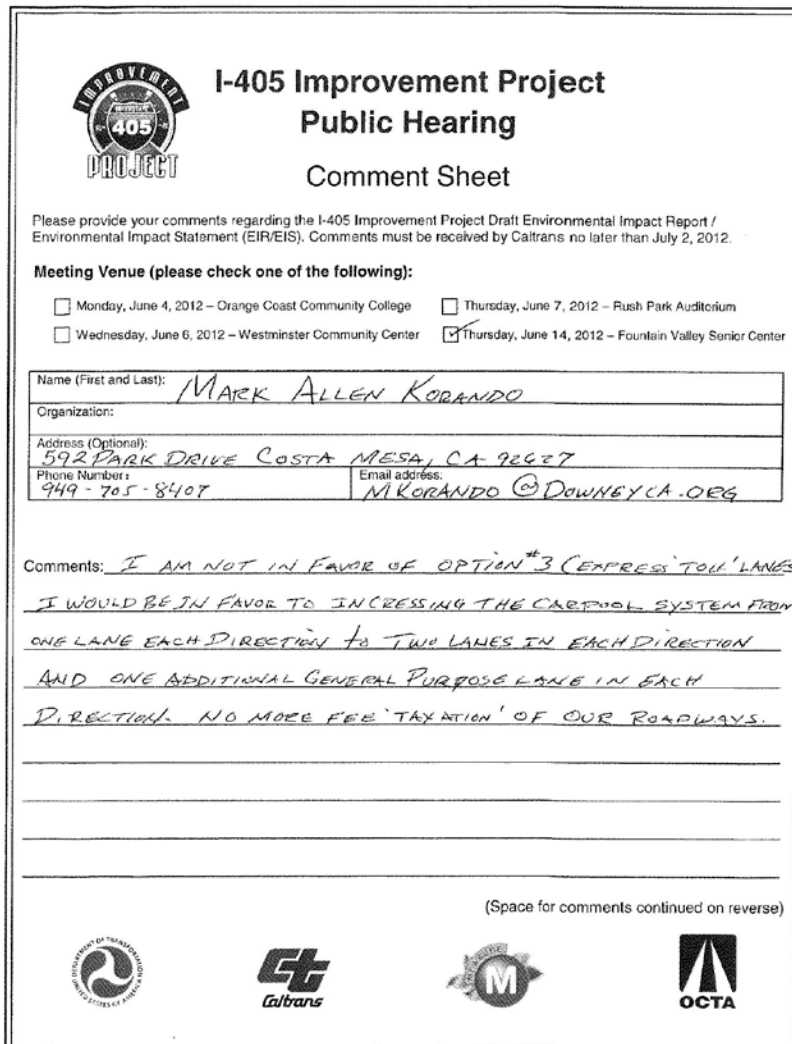 IMPROVEMENT
INTERSTATE
405
PROJECT
I-405 Improvement Project
Public Hearing
Comment Sheet
Please provide your comments regarding the I-405 Improvement Project Draft Environmental Impact Report /
Environmental Impact Statement (EIR/EIS). Comments must be received by Caltrans no later than July 2, 2012.
Meeting Venue (please check one of the following):
Monday, June 4, 2012 – Orange Coast Community College
Thursday, June 7, 2012 – Rush Park Auditorium
Wednesday, June 6, 2012 – Westminster Community Center
Thursday, June 14, 2012 – Fountain Valley Senior Center
Name (First and Last): MARK ALLEN KORANDO
Organization:
Address (Optional):
592 PARK DRIVE COSTA MESA, CA 92627
Phone Number:
949-705-8407
Email address:
MKORANDO@DOWNEYCA.ORG
Comments: I AM NOT IN FAVOR OF OPTION #3 (EXPRESS 'TOLL' LANES
I WOULD BE IN FAVOR TO INCRESSING THE CARPOOL SYSTEM FROM
ONE LANE EACH DIRECTION to TWO LANES IN EACH DIRECTION
AND ONE ADDITIONAL GENERAL PURPOSE LANE IN EACH
DIRECTION. NO MORE FEE 'TAXATION' OF OUR ROADWAYS.
(Space for comments continued on reverse)
DEPARTMENT OF TRANSPORTATION
UNITED STATES OF AMERICA
Caltrans
M
OCTA